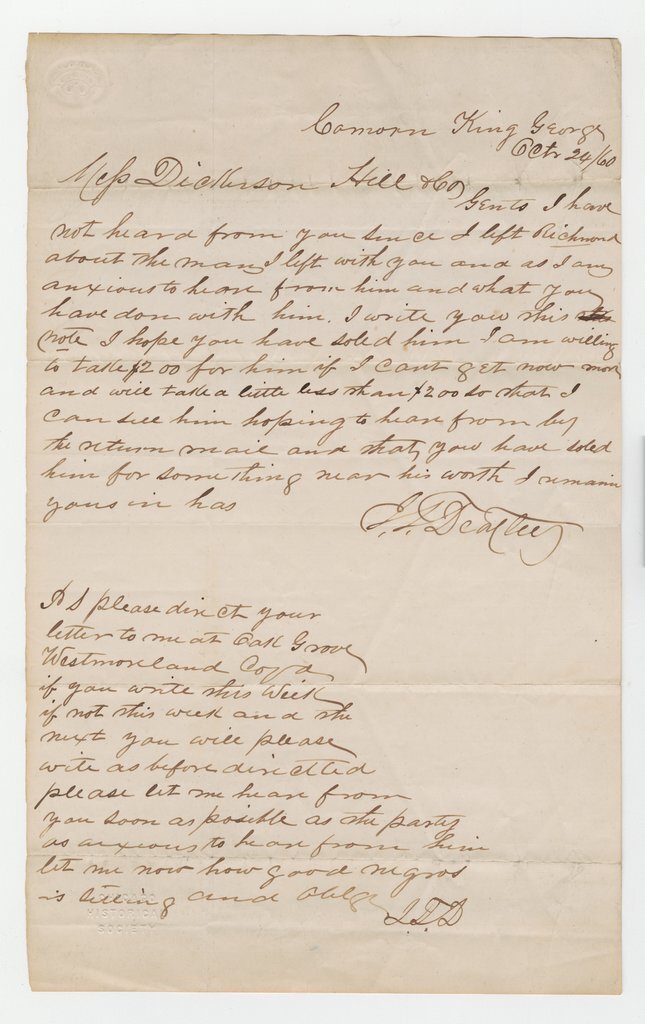 Comorn King George
Octr 24/60
Mess Dickerson Hill & Co
Gents I have
not heard from you since I left Richmond
about the man I left with you and as I am
anxious to hear from him and what you
have don with him. I write you this
note I hope you have soled him I am willing
to take $200 for him if I cant get now more
and will take a little less than $200 so that I
can sell him hoping to hear from by
the return mail and that you have soled
him for something near his worth I remain
yous in has
J. T. Deatley
P S please direct your
letter to me at Oak Grove
Westmoreland Co Va
if you write this Week
if not this week and the
next you will please
wite as before directted
please let me hear from
you soon as posible as the party
as anxious to hear from him
let me now how good negros
is selling and oblge
J. T. D
HISTORICAL
SOCIETY